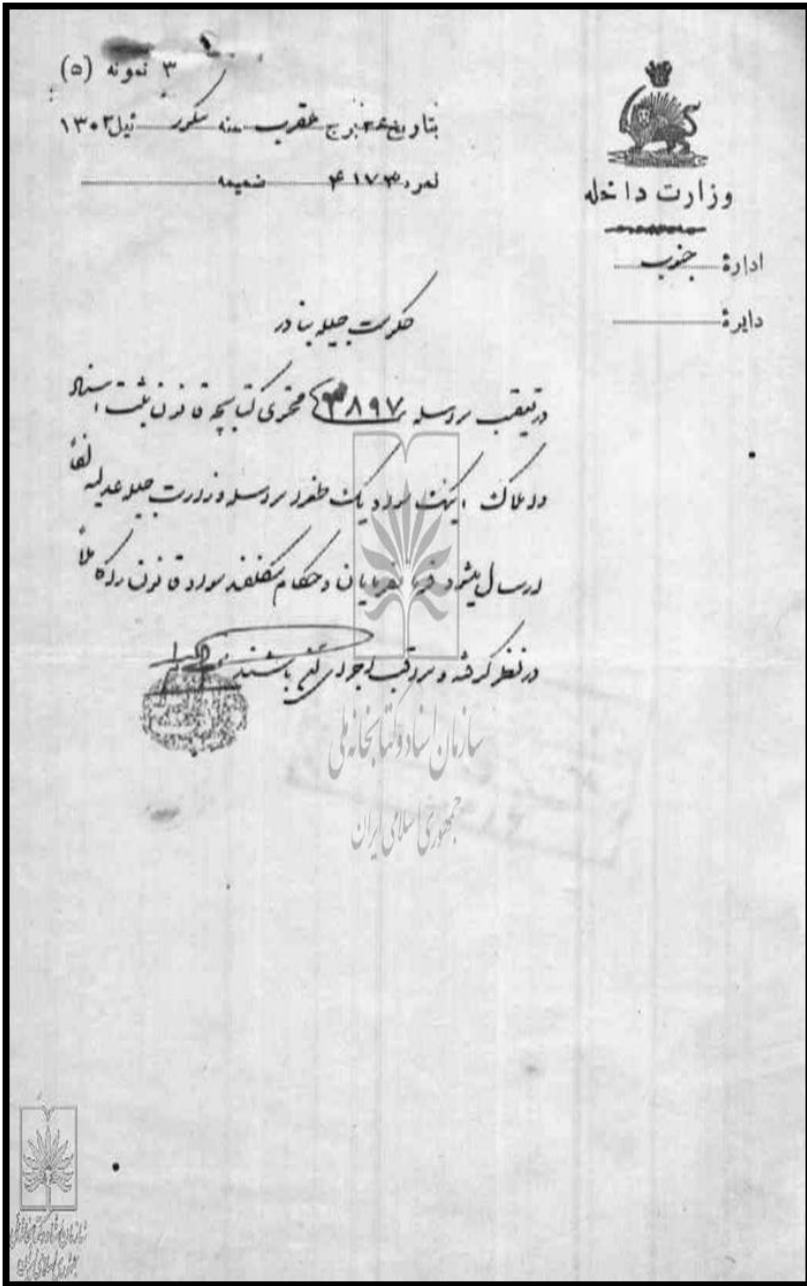 ۳ نمونه (۵)
بتاریخ ۲۶ برج عقرب سنه تیل ۱۳۰۲
نمره ۴۱۷۳ ضمیمه
وزارت داخله
ادارهٔ جنوب
دایرهٔ
حکومت جلیله بنادر
در تعقیب مراسله ۳۸۹۷ محتوی کتابچه قانون ثبت اسناد
و املاک اینک سواد یک طغرا مراسله وزارت جلیله عدلیه لفاً
ارسال میشود حکام مواد قانون را کاملاً
در نظر گرفته و مراقب اجرای آن باشند
سازمان اسناد و کتابخانه ملی
جمهوری اسلامی ایران
سازمان اسناد و کتابخانه ملی
جمهوری اسلامی ایران